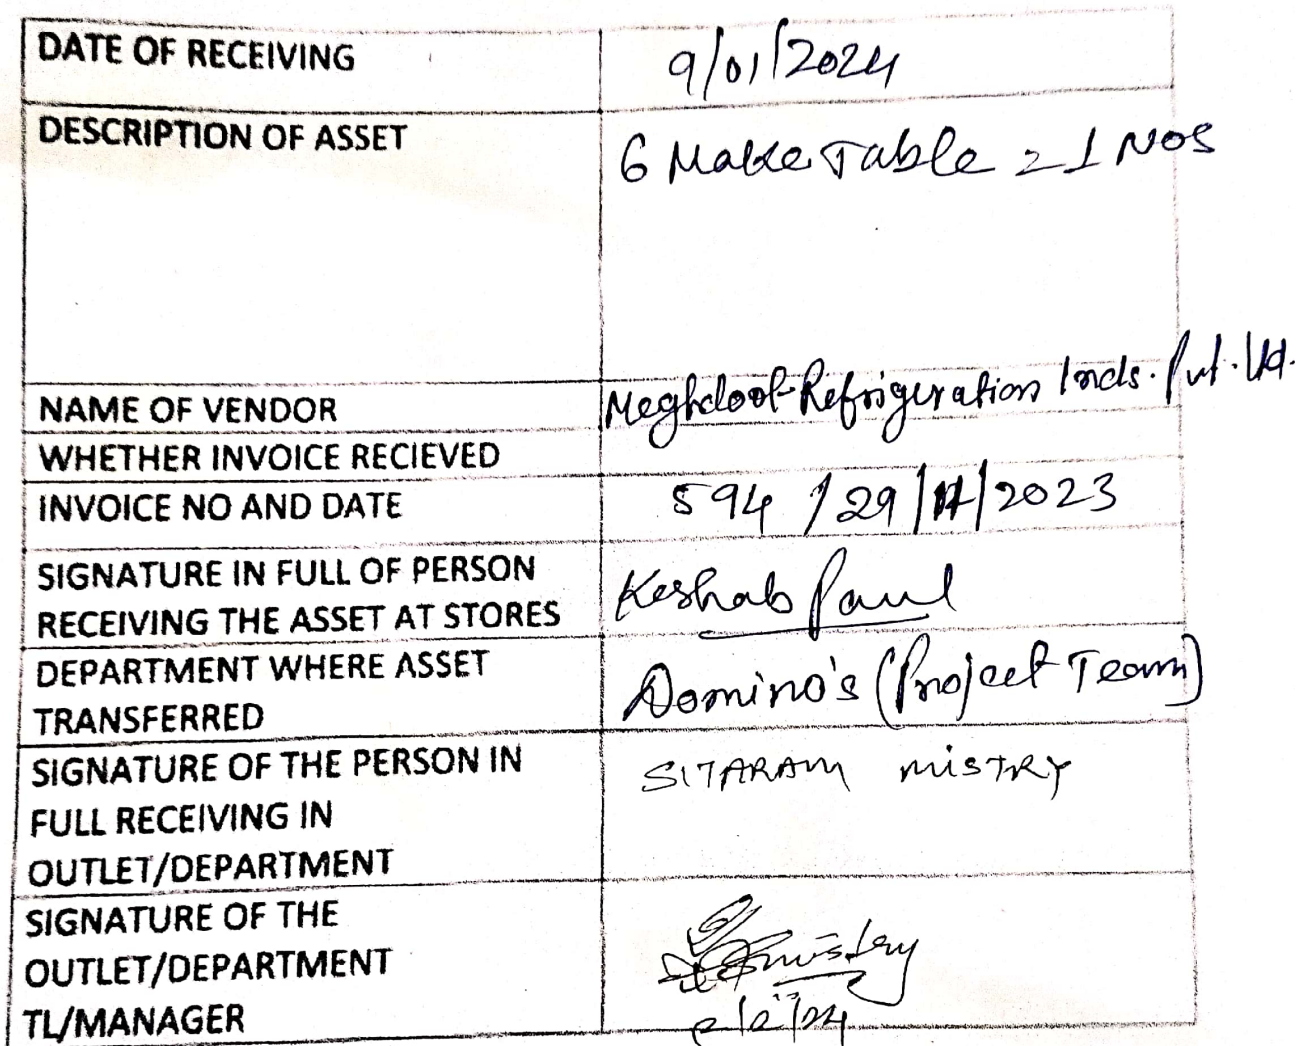 DATE OF RECEIVING 9/01/2024
DESCRIPTION OF ASSET 6 Make Table = 1 NOS
NAME OF VENDOR Meghdoot Refrigeration Inds. Pvt. Ltd.
WHETHER INVOICE RECIEVED
INVOICE NO AND DATE 594 / 29/11/2023
SIGNATURE IN FULL OF PERSON
RECEIVING THE ASSET AT STORES Keshab Paul
DEPARTMENT WHERE ASSET
TRANSFERRED Domino's (Project Team)
SIGNATURE OF THE PERSON IN SITARAM MISTRY
FULL RECEIVING IN
OUTLET/DEPARTMENT
SIGNATURE OF THE
OUTLET/DEPARTMENT mistry
TL/MANAGER